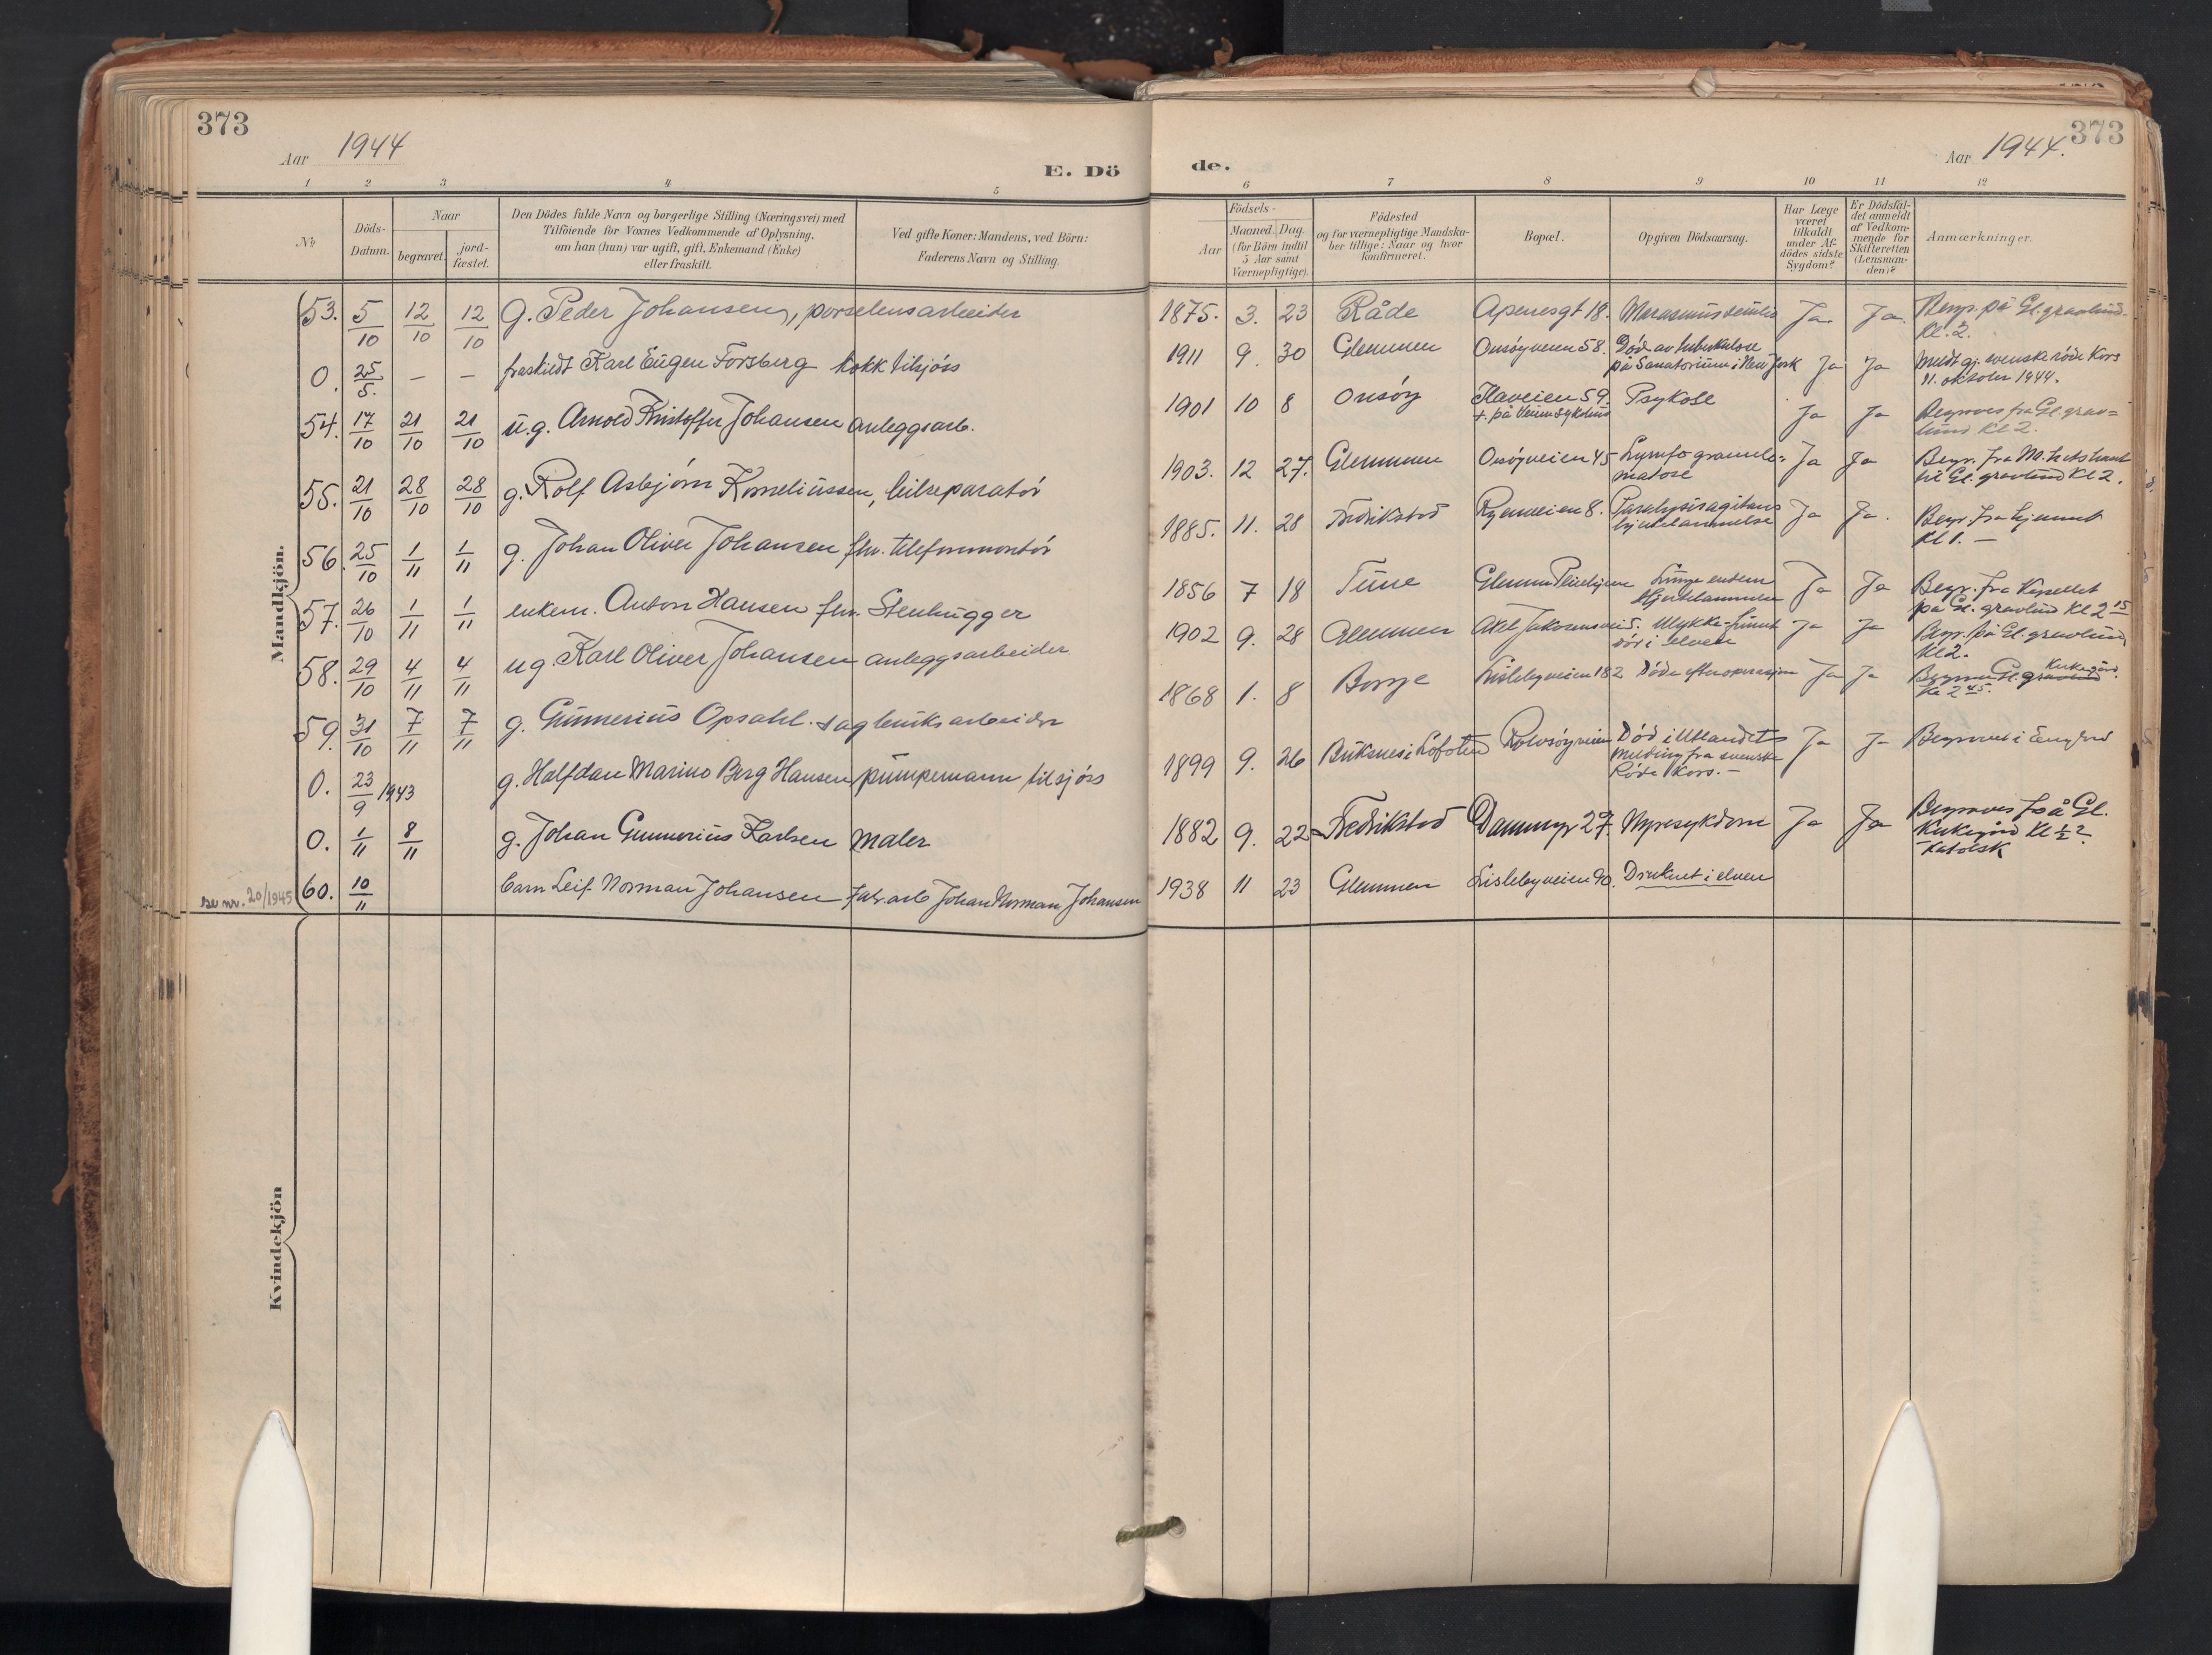 373
Aar 1944
E. Dö
1 2 3 4 5
No
Döds-
Datum.
Naar
begravet.
jord-
fæstet.
Den Dödes fulde Navn og borgerlige Stilling (Næringsvei) med
Tilföiende for Voxnes Vedkommende af Oplysning,
om han (hun) var ugift, gift, Enkemand (Enke)
eller fraskilt.
Ved gifte Koner: Mandens, ved Börn:
Faderens Navn og Stilling.
Mandkjön.
53. 5/10 12/10 12/10 g. Peder Johansen, porselensarbeider
0. 25/5. — — fraskildt Karl Eugen Forsberg kokk tilsjøss
54. 17/10 21/10 21/10 u.g. Arnold Kristoffer Johansen anleggsarb.
55. 21/10 28/10 28/10 g. Rolf Asbjørn Korneliussen, bilreparatør
56. 25/10 1/11 1/11 g. Johan Oliver Johansen fhv. telefonmontør
57. 26/10 1/11 1/11 enkem. Anton Hansen fhv. Stenhugger
58. 29/10 4/11 4/11 ug. Karl Oliver Johansen anleggsarbeider
59. 31/10 7/11 7/11 g. Gunnerius Opsahl. sagbruksarbeider
0. 23/9 1943 g. Halfdan Marino Berg Hansen pumpemann til sjøss
0. 1/11 8/11 g. Johan Gunnerius Karlsen maler
se nr. 20/1945 60. 10/11 barn Leif Norman Johansen fabr.arb Johan Norman Johansen
Kvindekjön
373
de.
Aar 1944.
6 7 8 9 10 11 12
Födsels-
Aar
Maaned. Dag.
(for Börn indtil
5 Aar samt
Værnepligtige).
Födested
og for værnepligtige Mandska-
ber tillige: Naar og hvor
konfirmeret.
Bopæl.
Opgiven Dödsaarsag.
Har Læge
været
tilkaldt
under Af-
dödes sidste
Sygdom?
Er Dödsfal-
det anmeldt
af Vedkom-
mende for
Skifteretten
(Lensman-
den)?
Anmærkninger.
1875. 3. 23 Råde Apenesgt 18. Marasmus senilis Ja Ja. Begr. på Gl. gravlund.
Kl. 2.
1911 9. 30 Glemmen Onsøyveien 58. Død av tuberkulose
på Sanatorium i New York Ja Ja Meldt gj. svenske røde Kors
11. oktober 1944.
1901 10 8 Onsøy 59. Psykose
Ja Ja Begraves fra Gl. grav=
lund Kl 2.
1903. 12 27. Glemmen Onsøyveien 45 Lymfogranulo=
matose Ja Ja Begr. fra
til Gl. gravlund Kl 2.
1885. 11. 28 Fredrikstad Ryenveien 8. Paralysis agitans
hjertelammelse Ja Ja. Begr. fra hjemmet
Kl 1. —
1856 7 18 Tune Glemmen Pleiehjem
Hjertelammelse Ja Ja Begr. fra Kapellet
på Gl. gravlund Kl 2 15
1902 9. 28 Glemmen Axel 5. Ulykke. Funnet
død i elven Ja Ja Begr. på Gl. gravlund
Kl 2.
1868 1. 8 Borge Lislebyveien 182 Døde efter operasjon Ja Ja Gl. gravlund Kirkegård.
Kl 2 45.
1899 9. 26 Buksnes i Lofoten Rolvsøyveien Død i Utlandet
melding fra svenske
Røde Kors. — Ja Ja Begravet i England
1882 9. 22 Fredrikstad Dammyr 27. Nyresykdom Ja Ja Begraves på Gl.
Kirkegård Kl ½ 2
Katolsk
1938 11 23 Glemmen Lislebyveien 90. Druknet i elven